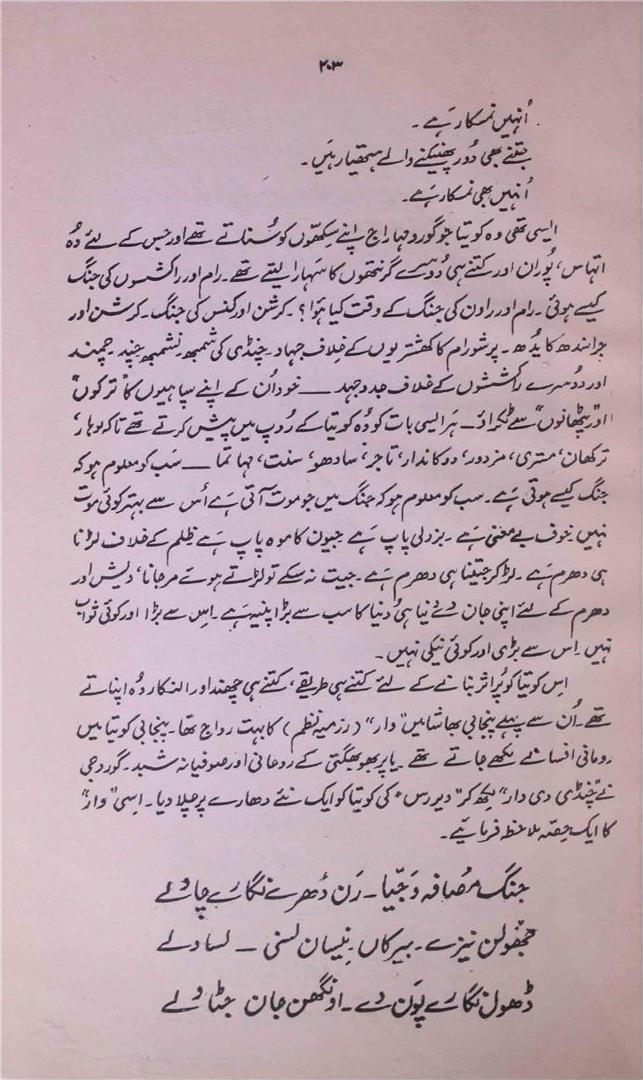 ۲۰۳
اُنہیں نمسکار ہے۔
جتنے بھی دُور پھینکنے والے ہتھیار ہیں۔
اُنہیں بھی نمسکار ہے۔
ایسی تھی وہ کویتا جو گورو مہاراج اپنے سِکھوں کو سُناتے تھے اور جس کے لئے وُہ
اتہاس، پُوران اور کتنے ہی دُوسرے گرنتھوں کا سہارا لیتے تھے۔ رام اور راکشسوں کی جنگ
کیسے ہوئی۔ رام اور راون کی جنگ کے وقت کیا ہؤا؟۔ کرشن اور کنس کی جنگ۔ کرشن اور
جراسندھ کا یُدھ۔ پرشورام کا کھشتریوں کے خلاف جہاد۔ چنڈی کی شمبھ نِشمبھ
اور دُوسرے راکشسوں کے خلاف جدوجہد ــــ خود اُن کے اپنے سپاہیوں کا "ترکوں"
اور "پٹھانوں" سے ٹکراؤ۔ ہر ایسی بات کو وُہ کویتا کے رُوپ میں پیش کرتے تھے تاکہ لوہار،
ترکھان، مستری، مزدور، دوکاندار، تاجر، سادھو، سنت، مہاتما ــــ سب کو معلوم ہو کہ
جنگ کیسے ہوتی ہے۔ سب کو معلوم ہو کہ جنگ میں جو موت آتی ہے اُس سے بہتر کوئی موت
نہیں۔ خوف بے معنی ہے۔ بزدلی پاپ ہے۔ جیون کا موہ پاپ ہے۔ ظلم کے خلاف لڑنا
ہی دھرم ہے۔ لڑ کر جیتنا ہی دھرم ہے۔ جیت نہ سکے تو لڑتے ہوئے مر جانا، دیش اور
دھرم کے لئے اپنی جان دے دینا ہی دُنیا کا سب سے بڑا پنیہ ہے۔ اِس سے بڑا اور کوئی ثواب
نہیں۔ اِس سے بڑی اور کوئی نیکی نہیں۔
اِس کویتا کو پُر اثر بنانے کے لئے کتنے ہی طریقے، کتنے ہی چھند اور النکار وُہ اپناتے
تھے۔ اُن سے پہلے پنجابی بھاشا میں "وار" (رزمیہ نظم) کا بہت رواج تھا۔ پنجابی کویتا میں
رومانی افسانے لکھے جاتے تھے۔ یا پربھو بھگتی کے روحانی اور صوفیانہ شبد۔ گورو جی
نے "چنڈی دی وار" لکھ کر "ویررس" کی کویتا کو ایک نئے دھارے پر چلا دیا۔ اِسی "وار"
کا ایک حِصّہ ملاحظہ فرمائیے۔
جنگ مُصافہ وَجّیا۔ رَن دُھرے نگارے چاولے
جھُولن نیزے۔ بیرکاں۔ نیسان لسنی ــ لساولے
ڈھول نگارے پَون دے۔ اونگھن جان جٹاولے